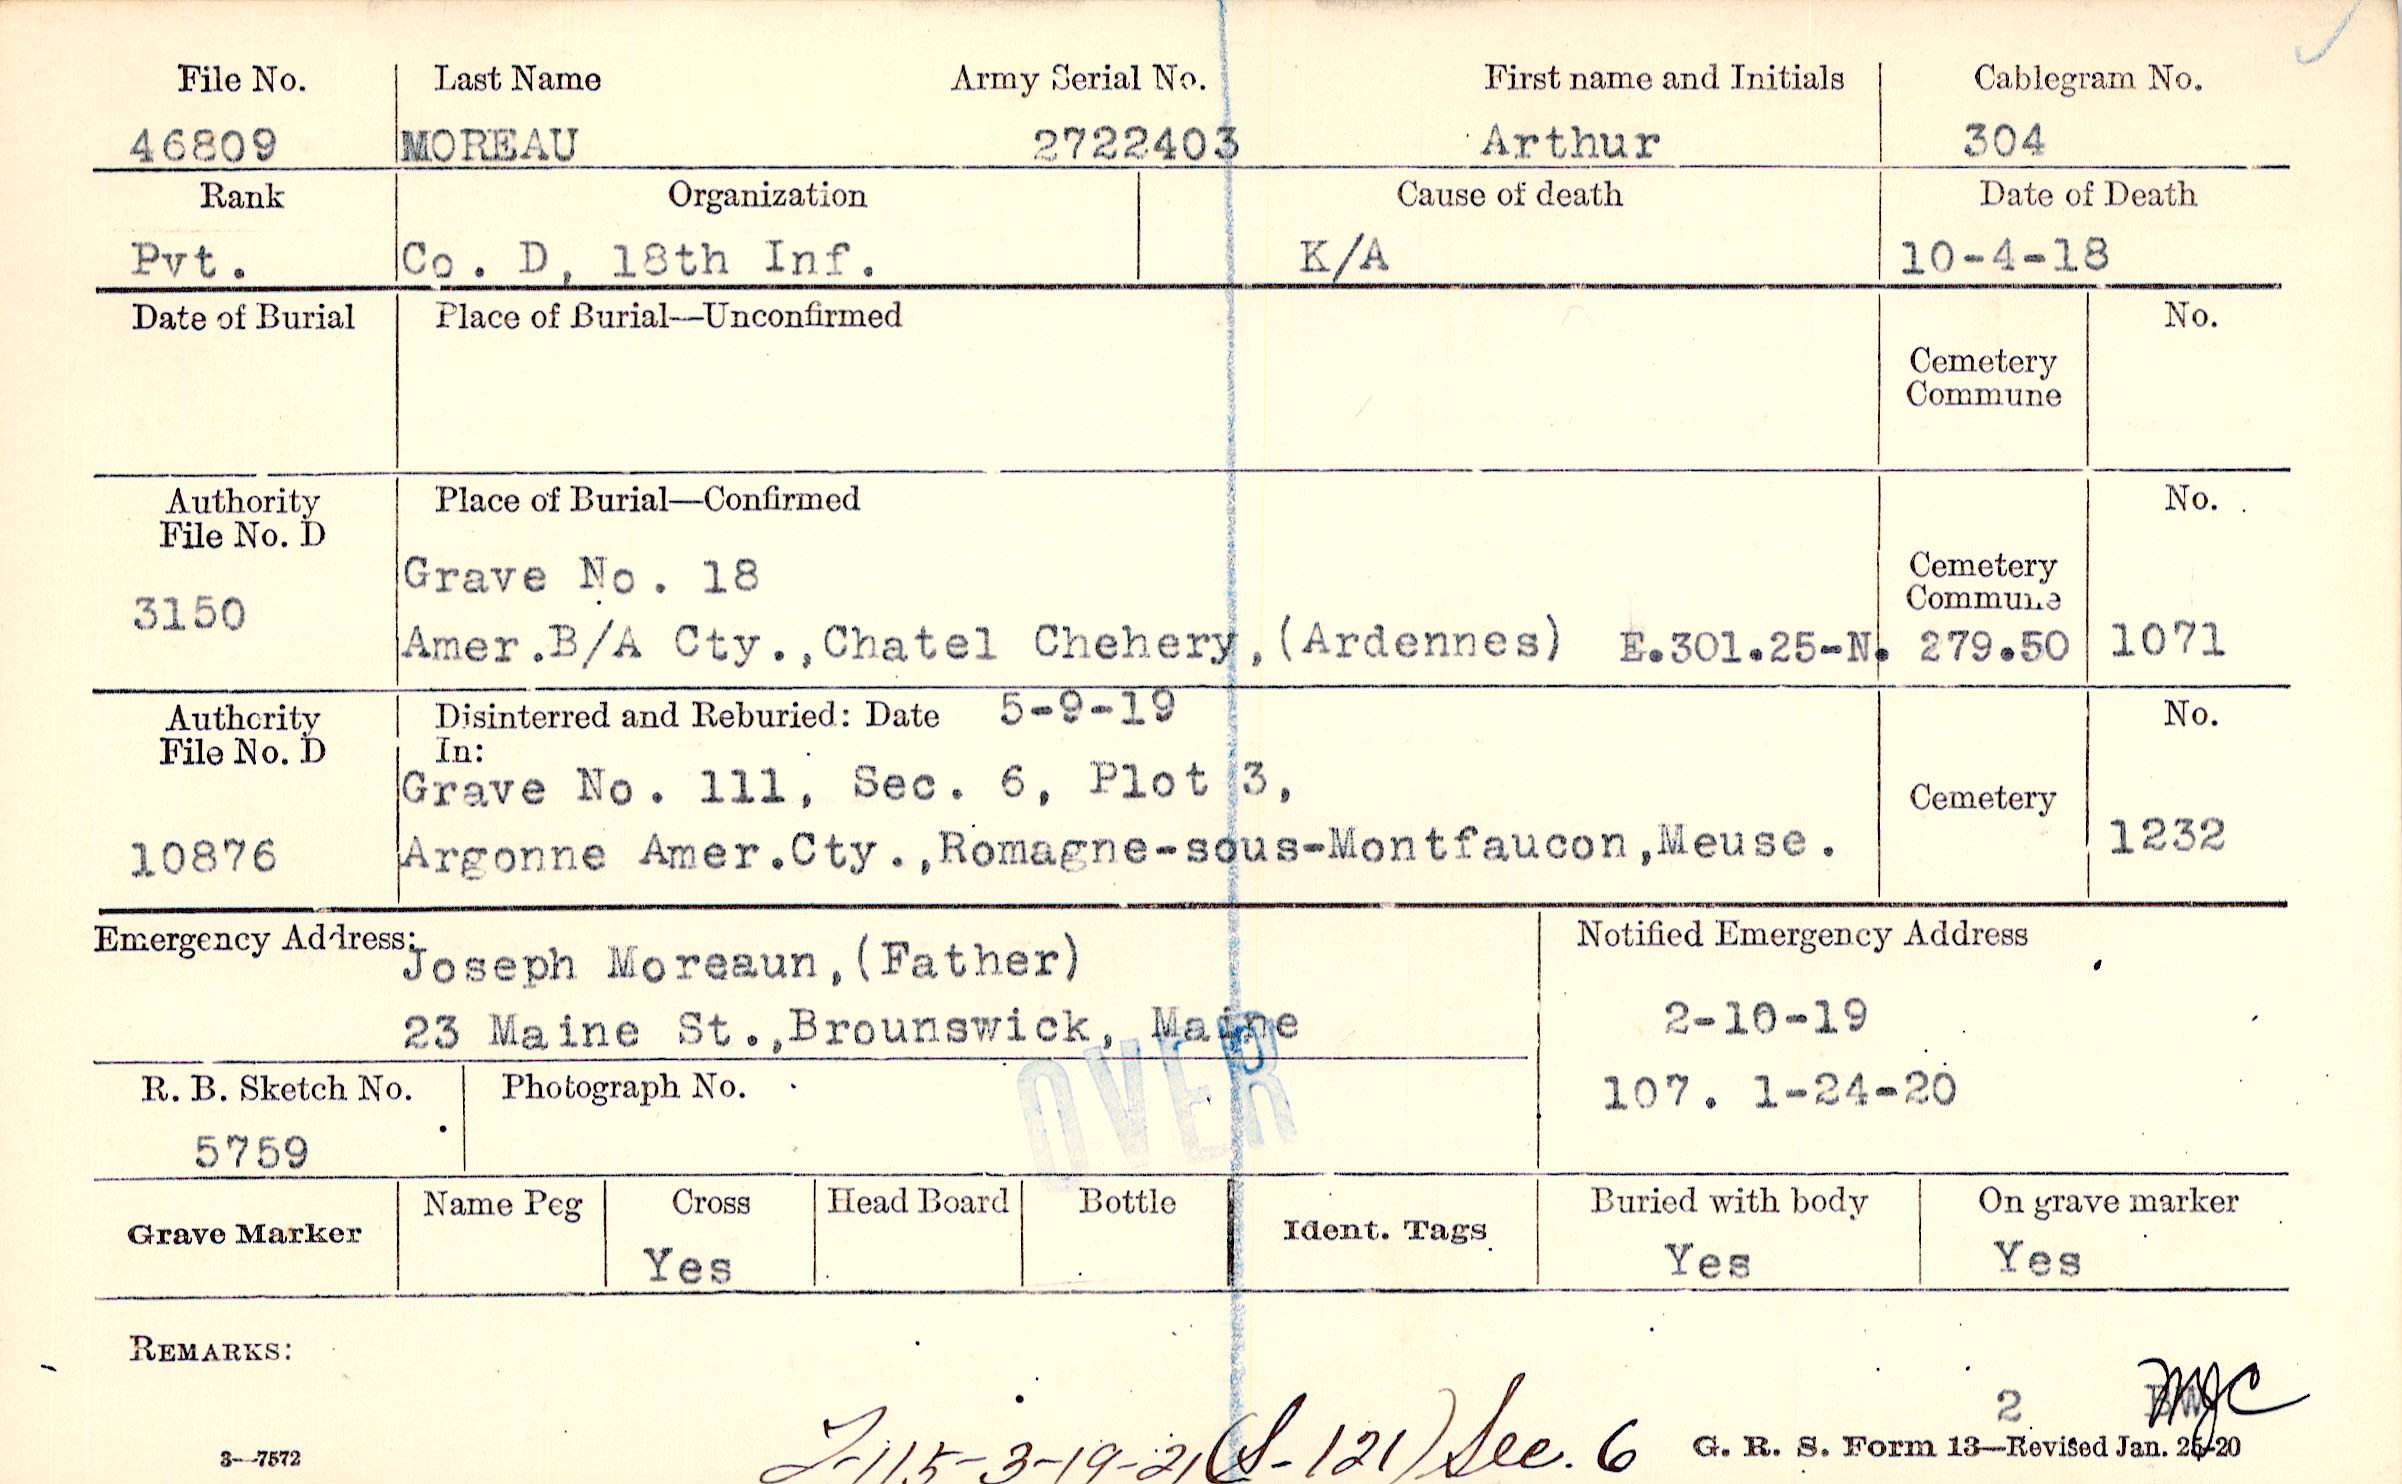 File No. Last Name Army Serial No. First name and Initials Cablegram No.
46809 MOREAU 2722403 Arthur 304
Rank Organization Cause of death Date of Death
Pvt. Co. D, 18th Inf. K/A 10-4-18
Date of Burial Place of Burial—Unconfirmed No.
Cemetery
Commune
Authority Place of Burial—Confirmed No.
File No. D
Grave No. 18 Cemetery
3150 Commune
Amer.B/A Cty.,Chatel Chehery,(Ardennes) E.301.25-N. 279.50 1071
Authority Disinterred and Reburied: Date 5-9-19 No.
File No. D In:
Grave No. 111, Sec. 6, Plot 3, Cemetery
10876 Argonne Amer.Cty.,Romagne-sous-Montfaucon,Meuse. 1232
Emergency Address: Notified Emergency Address
Joseph Moreaun,(Father)
23 Maine St.,Brounswick, Maine 2-10-19
OVER
R. B. Sketch No. Photograph No. 107. 1-24-20
5759
Grave Marker Name Peg Cross Head Board Bottle Ident. Tags Buried with body On grave marker
Yes Yes Yes
REMARKS:
2 MJC
3—7572 115-3-19-21 (S-121) Sec. 6 G. R. S. Form 13—Revised Jan. 25-20